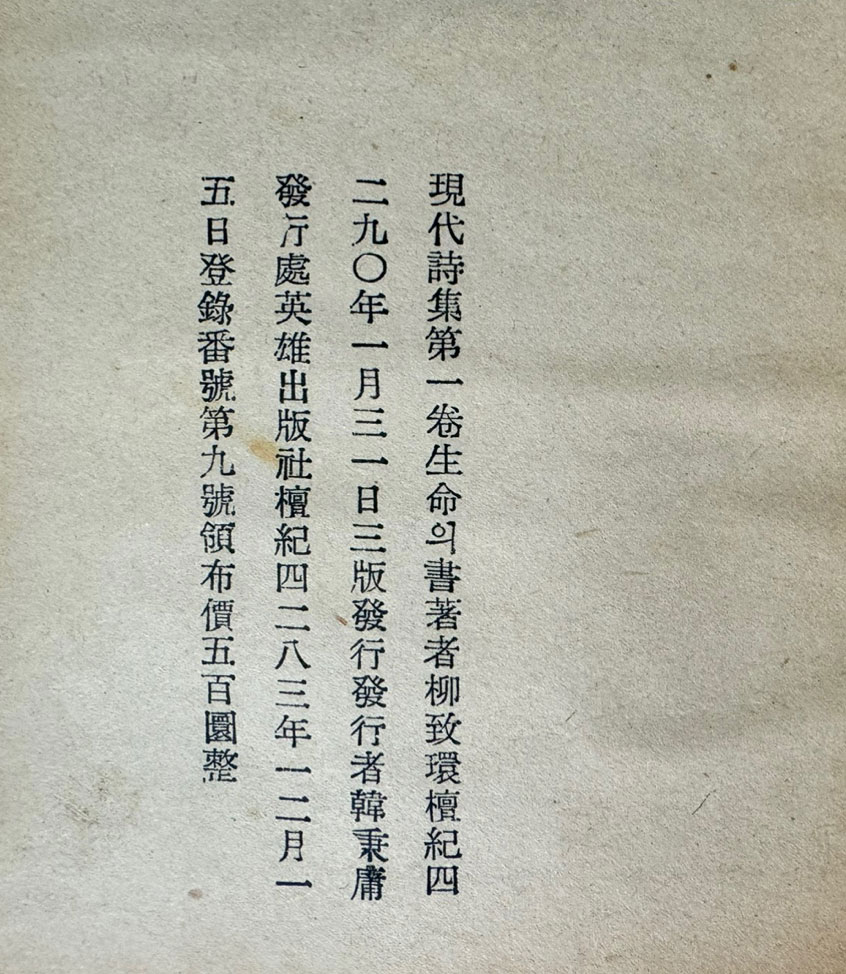 現代詩集第一卷生命의書著者柳致環檀紀四
二九〇年一月三一日三版發行發行者韓秉庸
發行處英雄出版社檀紀四二八三年一二月一
五日登錄番號第九號領布價五百圜整